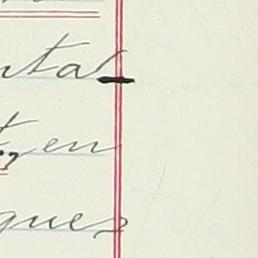 ntal
t, en
ques